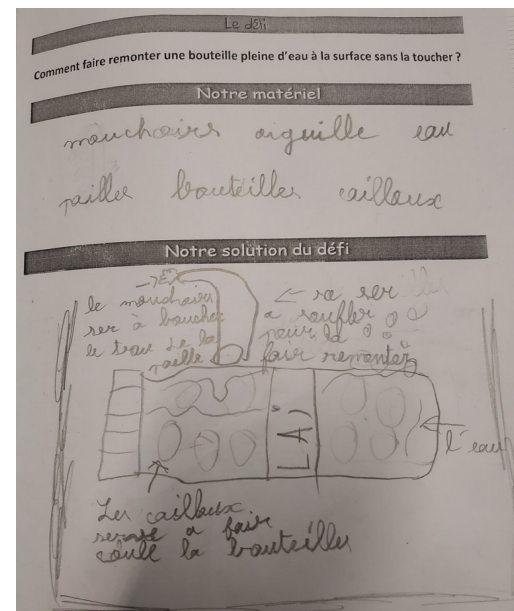 Le défi
Comment faire remonter une bouteille pleine d'eau à la surface sans la toucher ?
Notre matériel
mouchoirs aiguille eau
pailles bouteilles cailloux
Notre solution du défi
le mouchoirs
ser à boucher
le trou de la
paille
← sa ser
a soufler
pour la
fair remonter
l'eau
Les cailloux
serve a fair
coule la bouteilles